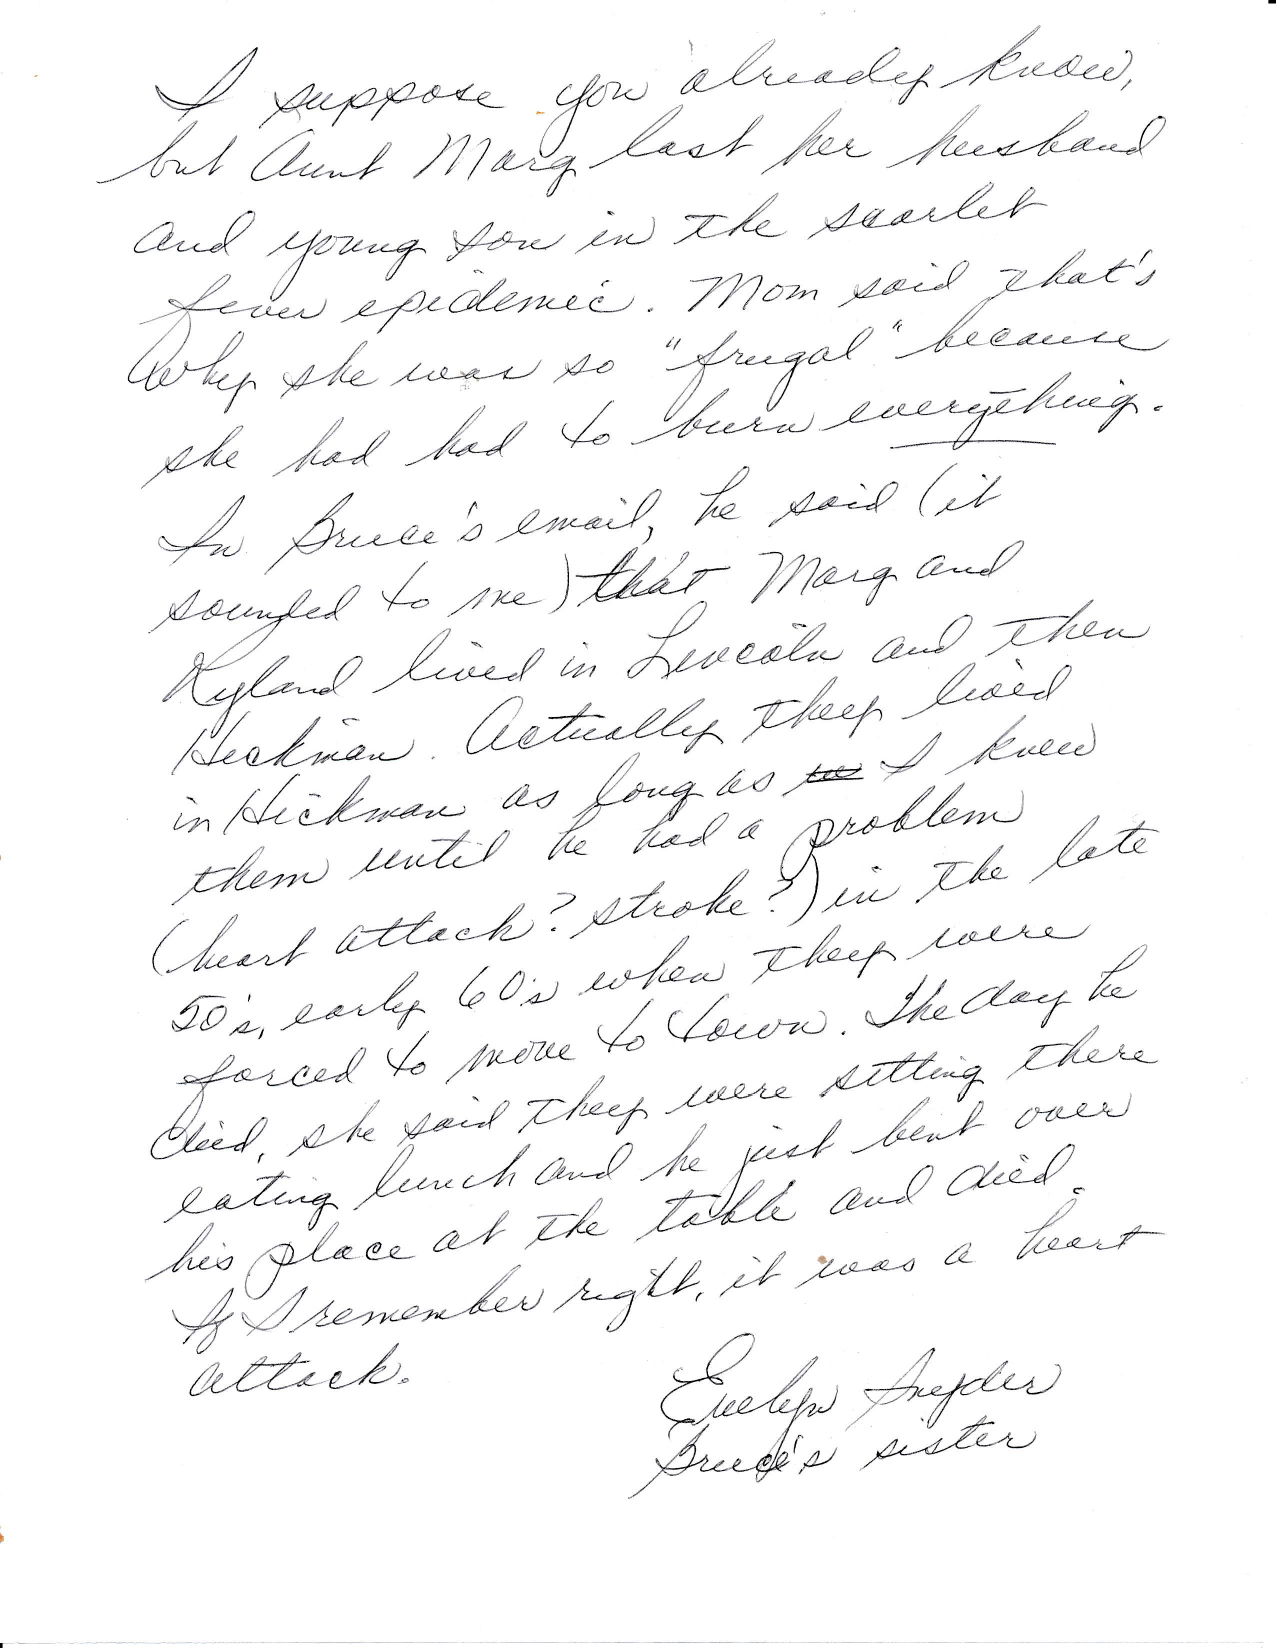 I suppose you already know,
but Aunt Marg lost her husband
and young son in the scarlet
fever epidemic. Mom said that's
why she was so "frugal" because
she had had to burn everything.
In Bruce's email, he said (it
sounded to me) that Marg and
Ryland lived in Lincoln and then
Hickman. Actually they lived
in Hickman as long as I knew
them until he had a problem
(heart attack? stroke?) in the late
50's, early 60's when they were
forced to move to town. The day he
died, she said they were sitting there
eating lunch and he just bent over
his place at the table and died.
If I remember right, it was a heart
attack.
Evelyn Snyder
Bruce's sister